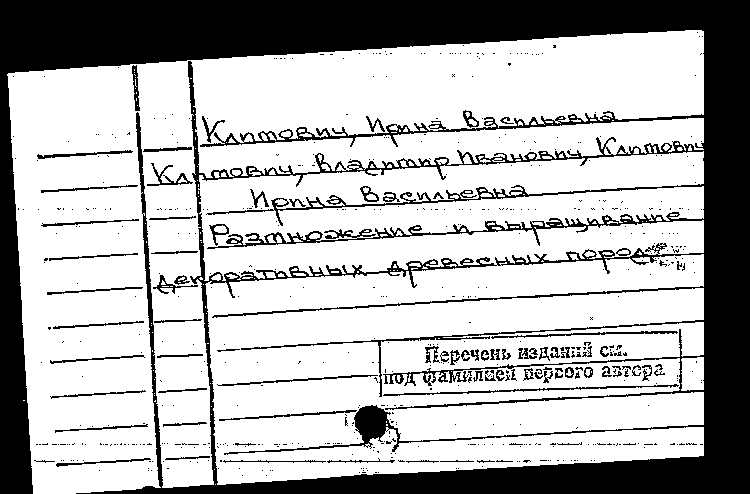 Климович, Ирина Васильевна
Климович, Владимир Иванович, Климович
Ирина Васильевна
Размножение и выращивание
декоративных древесных пород
Перечень изданий см.
под фамилией первого автора